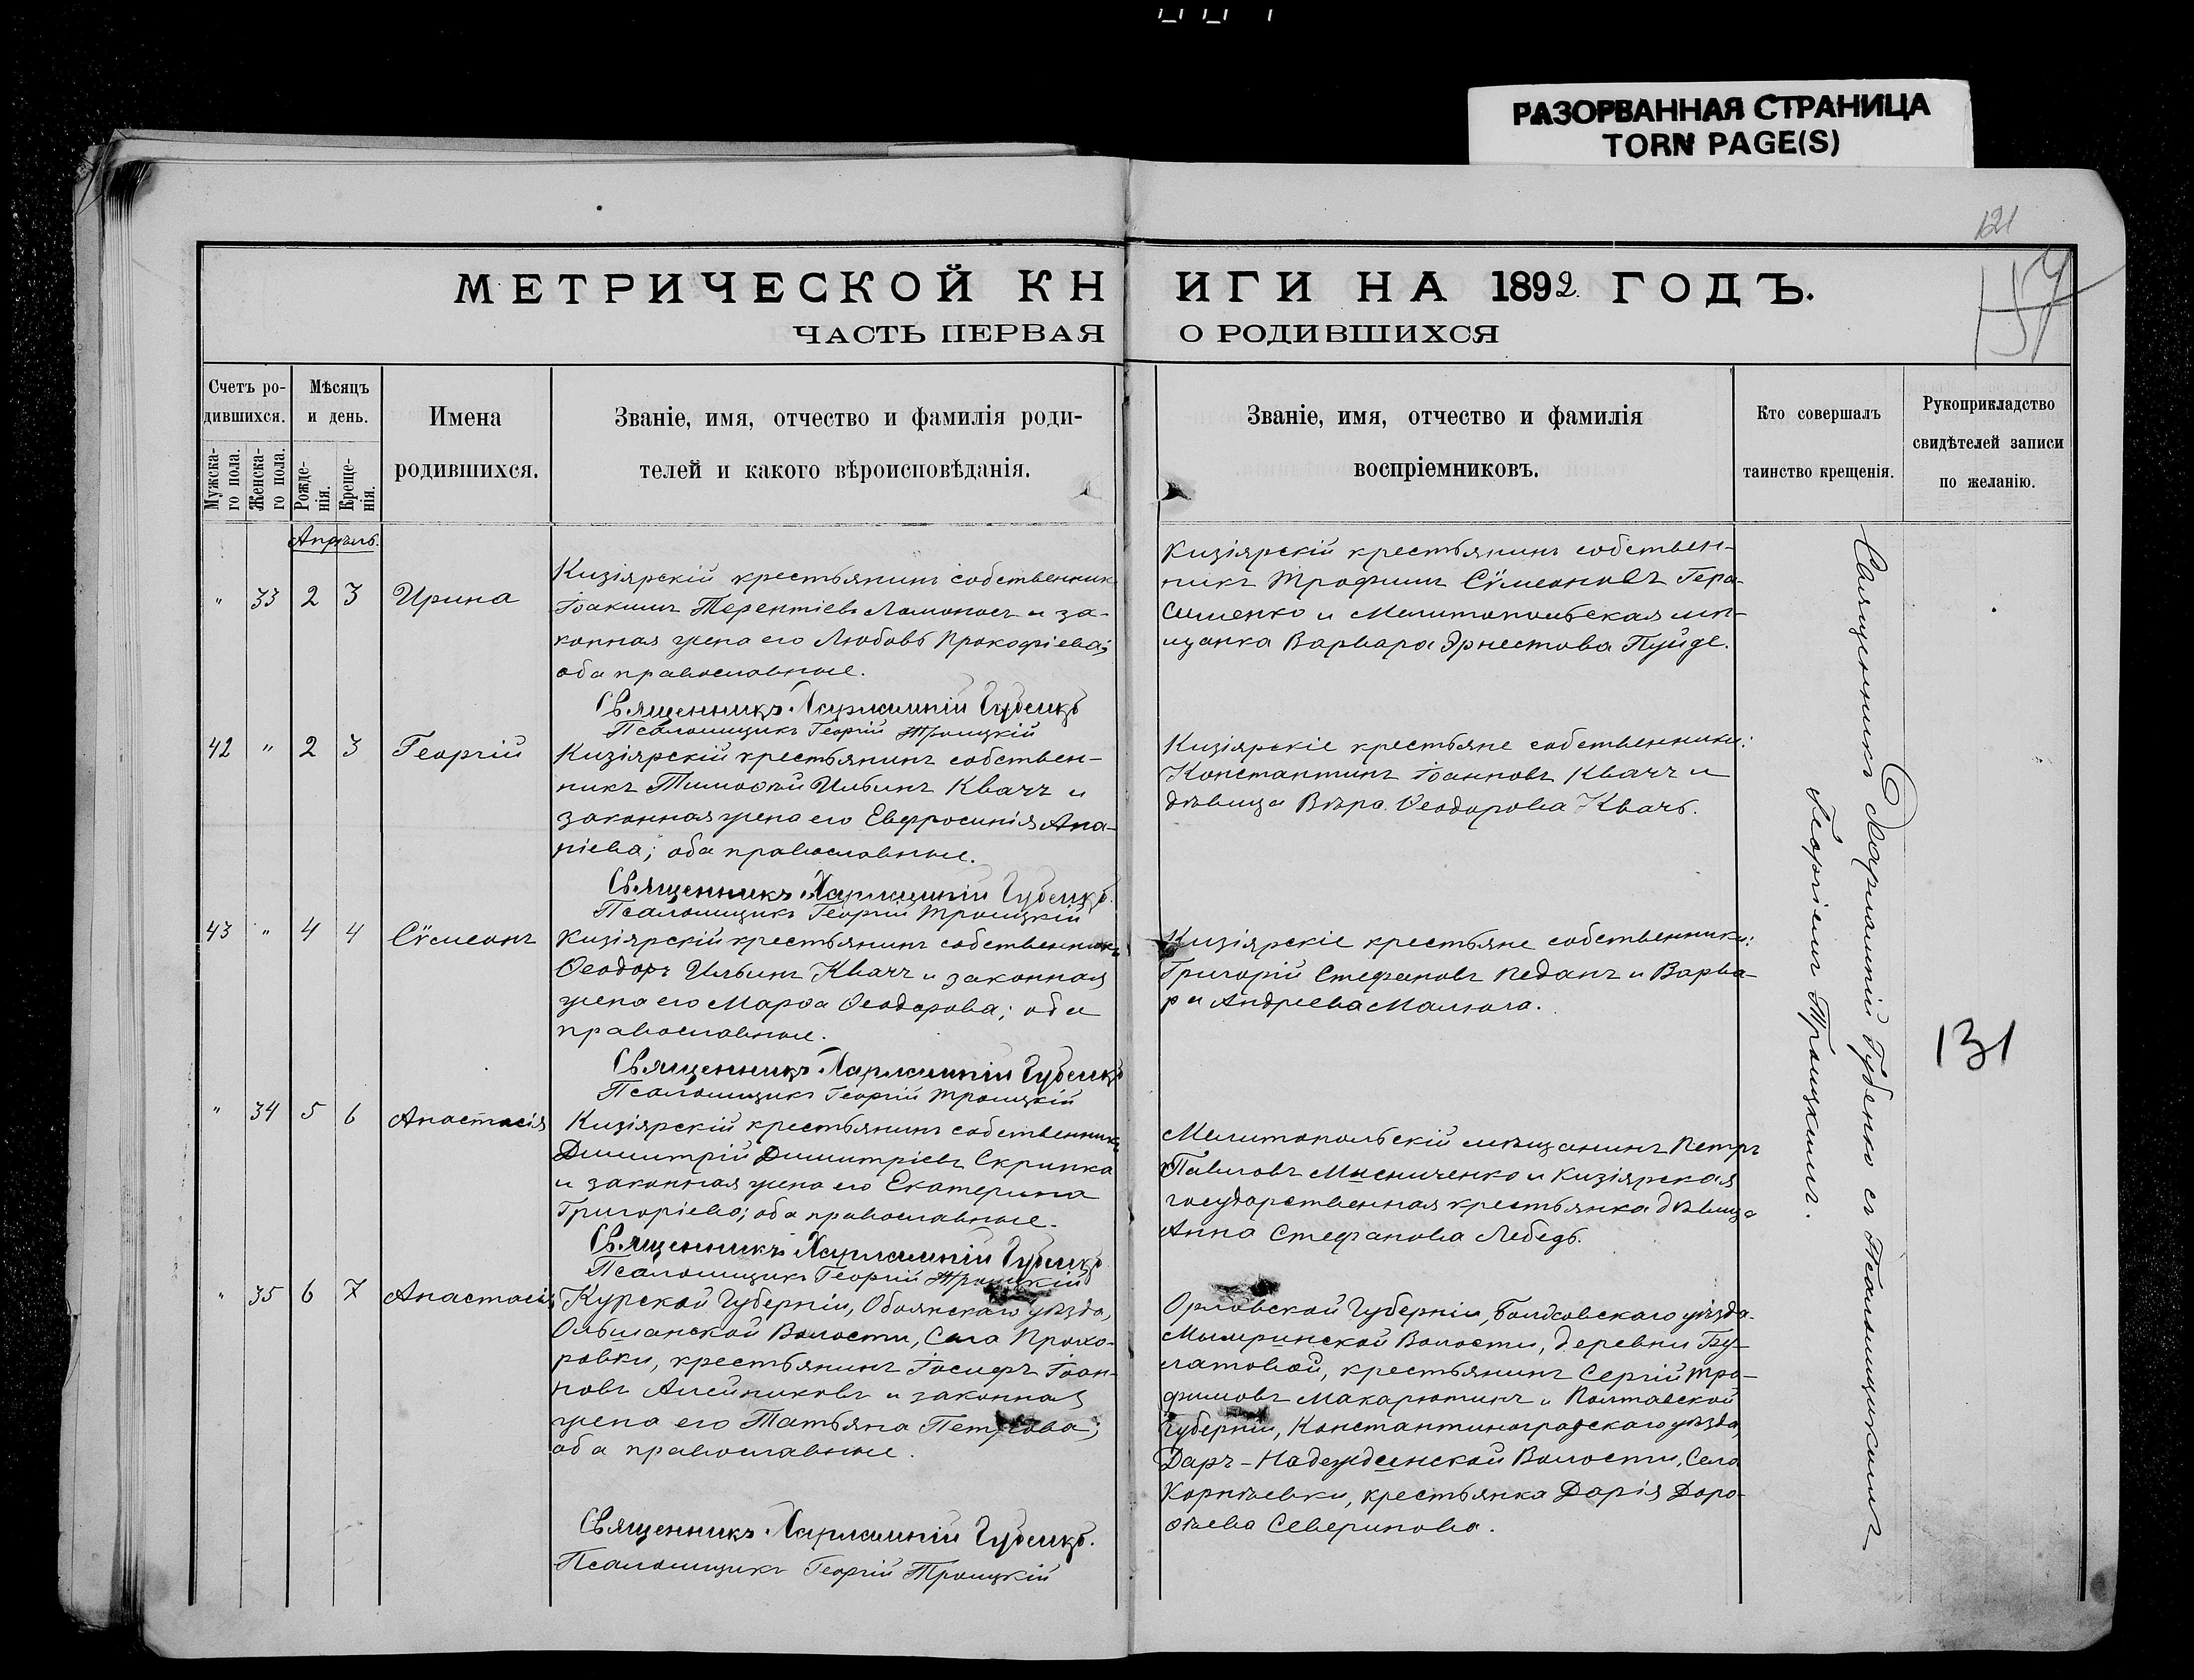 РАЗОРВАННАЯ СТРАНИЦА
TORN PAGE(S)
121
МЕТРИЧЕСКОЙ КНИГИ НА 1892 ГОДЪ.
ЧАСТЬ ПЕРВАЯ О РОДИВШИХСЯ
Счетъ ро-
дившихся.
Мужска-
го пола.
Женска-
го пола.
Мѣсяцъ
и день.
Рожде-
нія.
Креще-
нія.
Имена
родившихся.
Званіе, имя, отчество и фамилія роди-
телей и какого вѣроисповѣданія.
Званіе, имя, отчество и фамилія
воспріемниковъ.
Кто совершалъ
таинство крещенія.
Рукоприкладство
свидѣтелей записи
по желанію.
Апрѣль.
" 33 2 3 Ирина
Кизіярскій крестьянинъ собственникъ
Іоакимъ Терентіевъ Ломоносъ и за-
конная жена его Любовь Прокофіева;
оба православные.
Священникъ Харлампій Губенко
Псаломщикъ Георгій Троицкій
Кизіярскій крестьянинъ собствен-
никъ Трофимъ Сѵмеоновъ Гера-
сименко и Мелитопольская мѣ-
щанка Варвара Эрнестова Пуйде.
42 " 2 3 Георгій
Кизіярскій крестьянинъ собствен-
никъ Тимоѳей Ильинъ Квачъ и
законная жена его Евфросинія Ана-
ніева; оба православные.
Священникъ Харлампій Губенко.
Псаломщикъ Георгій Троицкій
Кизіярскіе крестьяне собственники:
Константинъ Іоанновъ Квачъ и
дѣвица Вѣра Ѳеодорова Квачъ.
43 " 4 4 Сѵмеонъ
Кизіярскій крестьянинъ собственникъ
Ѳеодоръ Ильинъ Квачъ и законная
жена его Марѳа Ѳеодорова; оба
православные.
Священникъ Харлампій Губенко
Псаломщикъ Георгій Троицкій
Кизіярскіе крестьяне собственники:
Григорій Стефановъ Педанъ и Варва-
ра Андреева Малюга.
" 34 5 6 Анастасія
Кизіярскій крестьянинъ собственникъ
Димитрій Димитріевъ Скрипка
и законная жена его Екатерина
Григоріева; оба православные.
Священникъ Харлампій Губенко
Псаломщикъ Георгій Троицкій
Мелитопольскій мѣщанинъ Петръ
Павловъ Мисниченко и Кизіярская
государственная крестьянка дѣвица
Анна Стефанова Лебедь.
" 35 6 7 Анастасія
Курской Губерніи, Обоянскаго уѣзда,
Ольшанской Волости, Села Прохо-
ровки, крестьянинъ Іосифъ Іоан-
новъ Алейниковъ и законная
жена его Татьяна Петрова;
оба православные.
Священникъ Харлампій Губенко.
Псаломщикъ Георгій Троицкій
Орловской Губерніи, Болховскаго уѣзда.
Мымринской Волости, деревни Бу-
латовой, крестьянинъ Сергій Тро-
фимовъ Макарютинъ и Полтавской
Губерніи, Константиноградскаго уѣзда,
Даръ-Надеждинской Волости, Села
Корнѣевки, крестьянка Дарія Доро-
ѳѣева Северинова.
Священникъ Харлампій Губенко съ Псаломщикомъ
Георгіемъ Троицкимъ.
131